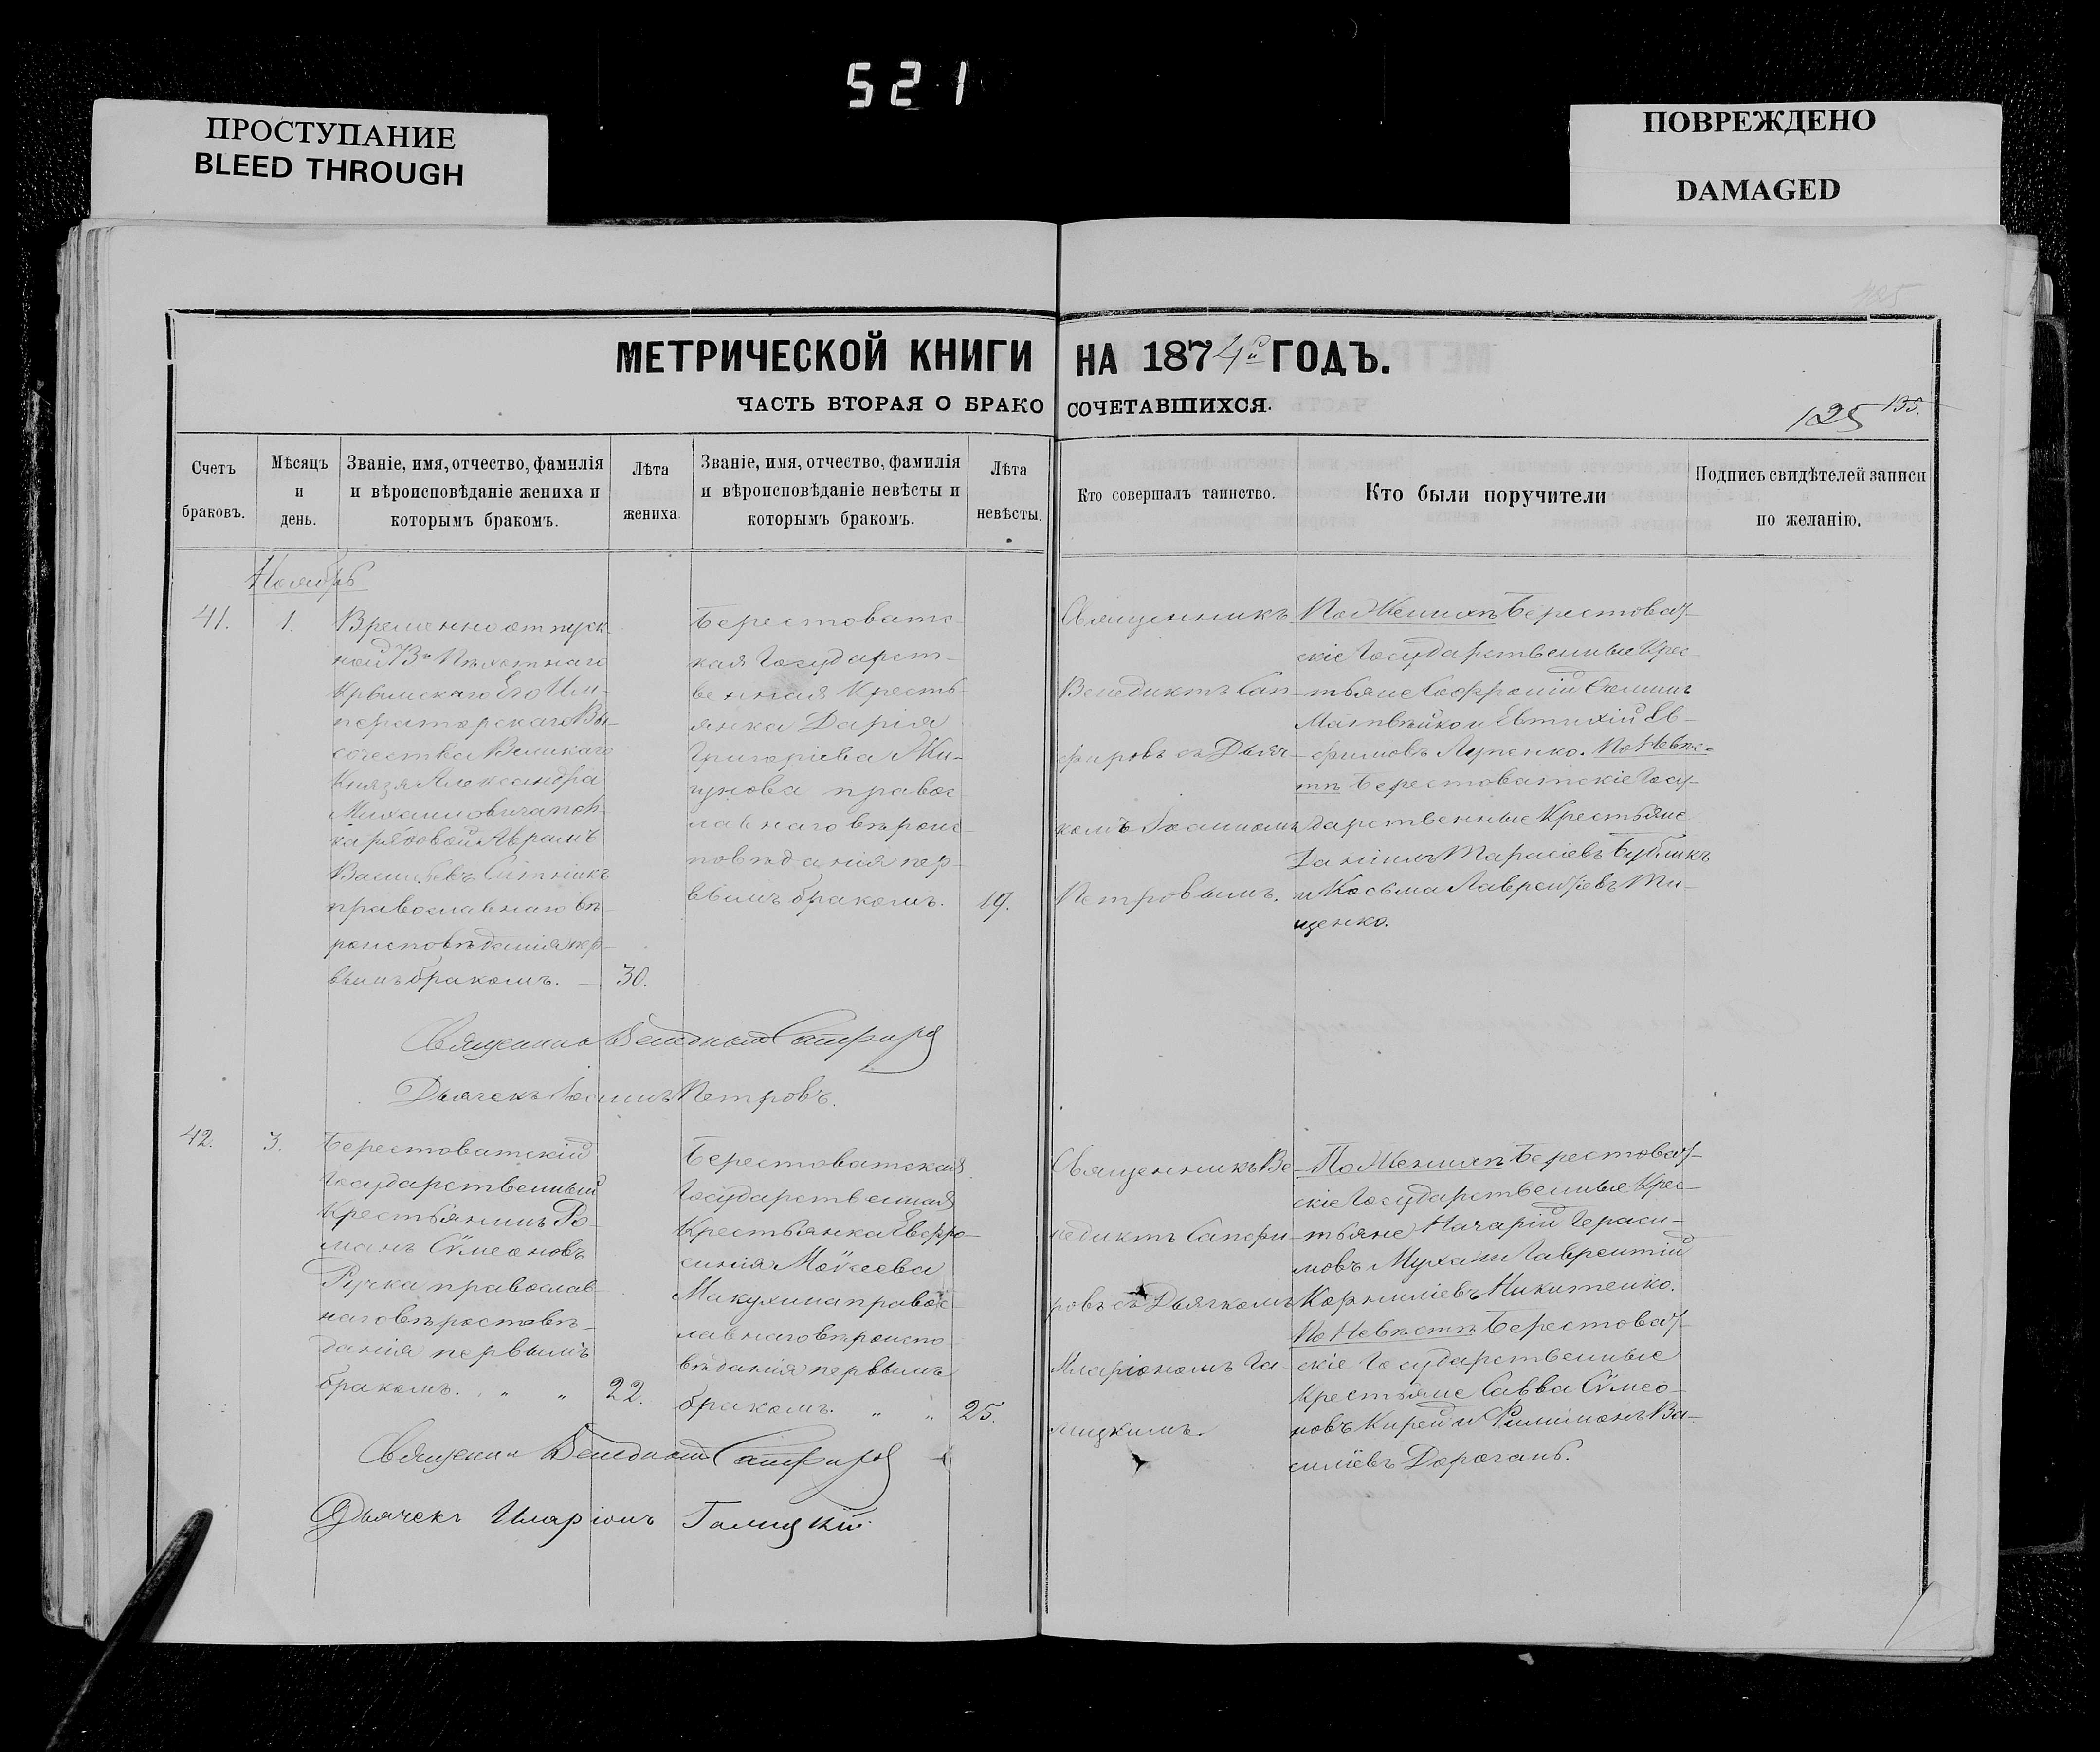 521
ПРОСТУПАНИЕ
BLEED THROUGH
ПОВРЕЖДЕНО
DAMAGED
МЕТРИЧЕСКОЙ КНИГИ НА 1874й ГОДЪ.
ЧАСТЬ ВТОРАЯ О БРАКОСОЧЕТАВШИХСЯ.
125 135.
Счетъ
браковъ.
Мѣсяцъ
и
день.
Званіе, имя, отчество, фамилія
и вѣроисповѣданіе жениха и
которымъ бракомъ.
Лѣта
жениха
Званіе, имя, отчество, фамилія
и вѣроисповѣданіе невѣсты и
которымъ бракомъ.
Лѣта
невѣсты.
Кто совершалъ таинство.
Кто были поручители
Подпись свидѣтелей записи
по желанію.
Ноябрь
41.
1.
Временно отпуск-
ной 73го Пѣхотнаго
Крымскаго Его Им-
ператорскаго Вы-
сочества Великаго
Князя Александра
Михаиловича пол-
ка рядовой Аврамъ
Васильевъ Ситникъ
православнаго вѣ-
роисповѣданія пер-
вымъ бракомъ.
30.
Берестоватс
кая Государст-
венная Кресть-
янка Дарія
Григоріева
правос-
лавнаго вѣроис-
повѣданія пер-
вымъ бракомъ.
19.
Священникъ
Венедиктъ Сап-
фировъ съ Дьяч-
комъ Іоанномъ
Петровымъ.
По Женихѣ Берестоват-
скіе Государственные Крес-
тьяне Софроній
Матвѣйко и Евтихій Ев-
фимовъ Луценко. По Невѣс-
тѣ Берестоватскіе Госу-
дарственные Крестьяне
Даніилъ Тарасіевъ Бубликъ
и Косьма Лаврентіевъ Ти-
щенко.
Священникъ Венедиктъ Сапфировъ
Дьячекъ Іоаннъ Петровъ.
42.
3.
Берестоватскій
Государственный
Крестьянинъ Ро-
манъ Сѵмеоновъ
Ручка православ-
наго
данія первымъ
бракомъ. „ „
22.
Берестоватская
Государственная
Крестьянка Евфро-
синія Моѵсеева
Макухина правос-
лавнаго вѣроиспо
вѣданія первымъ
бракомъ. „ „
25.
Священникъ Ве-
недиктъ Сапфи-
ровъ съ Дьячкомъ
Иларіономъ Га-
лицкимъ.
По Женихѣ Берестоват-
скіе Государственные Крес-
тьяне Назарій Гераси-
мовъ Муха и Лаврентій
Корниліевъ Никитенко.
По Невѣстѣ Берестоват-
скіе Государственные
Крестьяне Савва Сѵмео-
новъ Кирей и Филимонъ Ва-
силіевъ Дорогань.
Священникъ Венедиктъ Сапфировъ
Дьячекъ Иларіонъ Галицкій